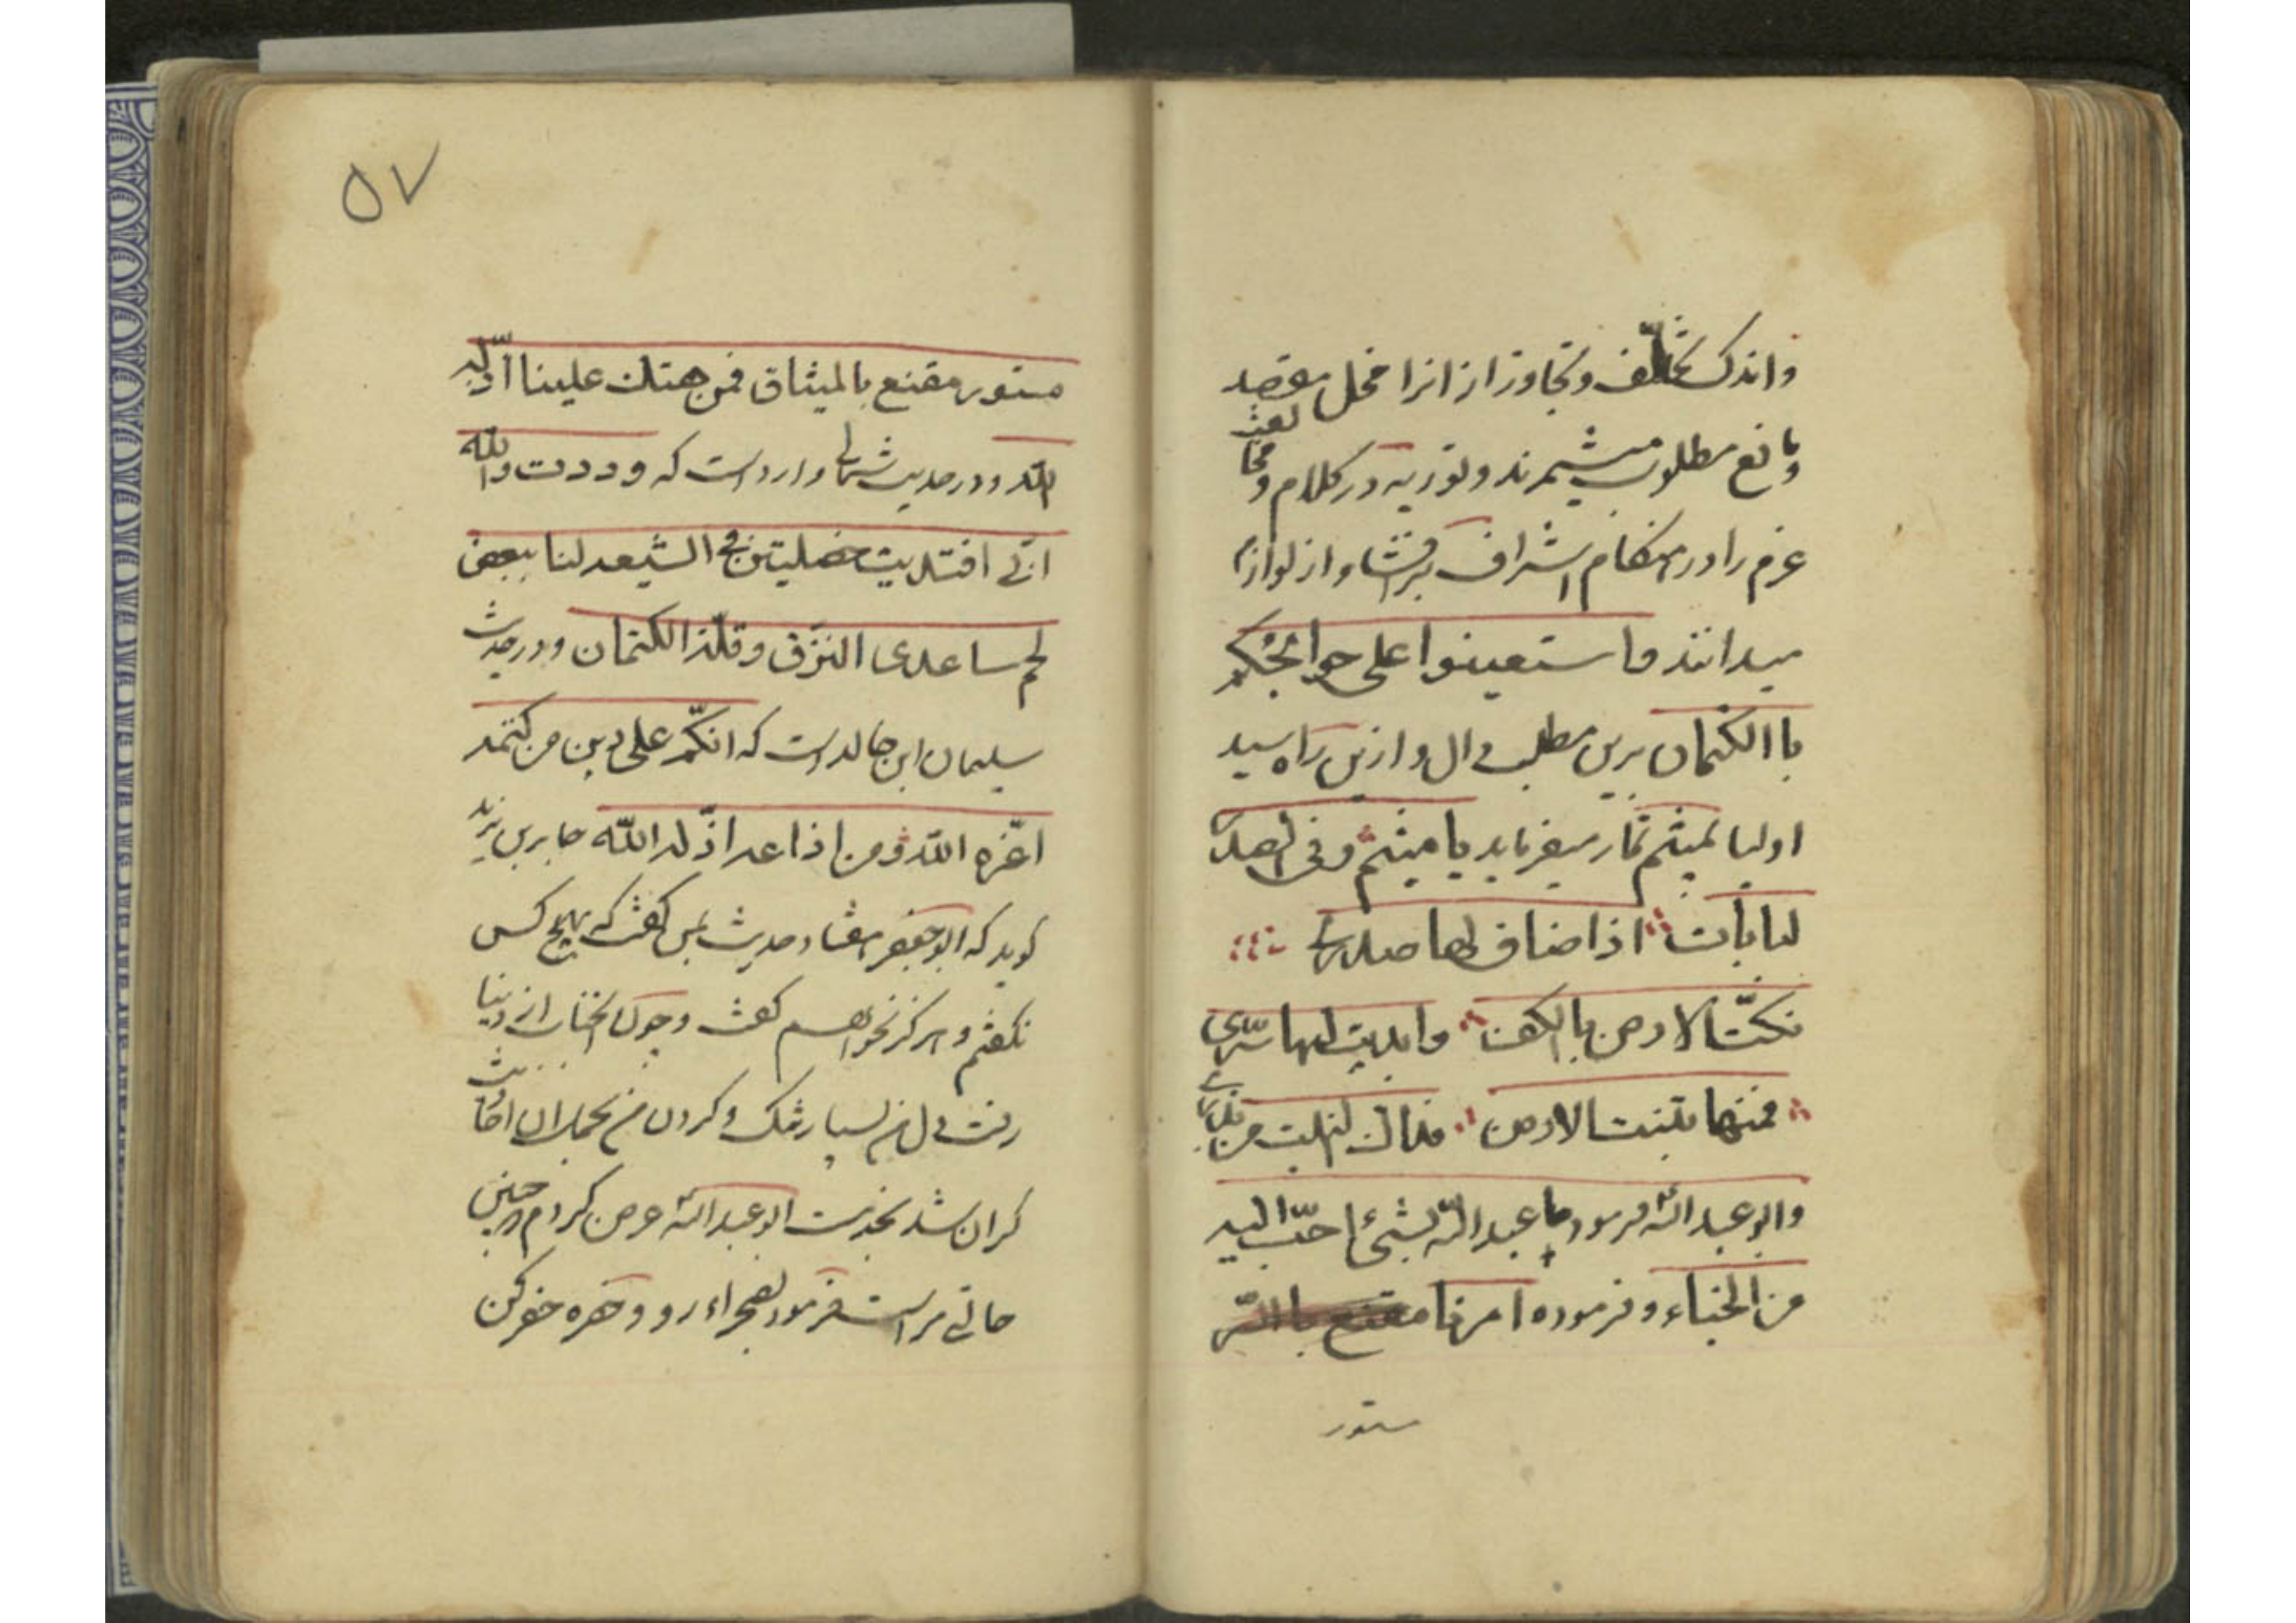 واندک تخلّف و تجاوز از انرا مخل مقصد
و مانع مطلوب میشمرند و توریه در کلام و مخالفت
عزم را در هنکام اشراف بر افشا و از لوازم
میدانند و استعینوا علی حوائجکم
باالکتمان برین مطلب دال و ازین راه سید
اولیا بمیثم تمار میفرماید یا میثم وفی الصدر
لبابات اذا ضاق لها صدری
نکتّ الارض بالکف وابدیت لها سرّی
فمنها تنبت الارض فذاک النبت من بذری
وابو عبدالله فرمود ما عبدالله بشئ احبّ الیه
من الخباء و فرموده امرنا
ستور
۵۷
مستور مقنع بالمیثاق فمن هتک علینا اذلّه
الله و در حدیث ثمالی وارد است که وددت والله
انّی افتدیت خصلیتن فی الشیعه لنا ببعض
لحم ساعدی النزق و قلّة الکتمان و در حدیث
سلیمان ابن خالد است که انّکم علی دین من کتمه
اعّزه الله و من اذاعه اذّله الله جابر بن یزید
کوید که ابو جعفر هفتاد حدیث بمن کفت که بهیچ کس
نکفتم و هرکز نخواهم کفت و چون انجناب از دنیا
رفت دل من بسیار تنک و کردن من بحمل ان احادیث
کران شد بخدمت ابو عبدالله عرض کردم چنین
حالتی مراست فرمود بصحراء رو و حفره حفر کن